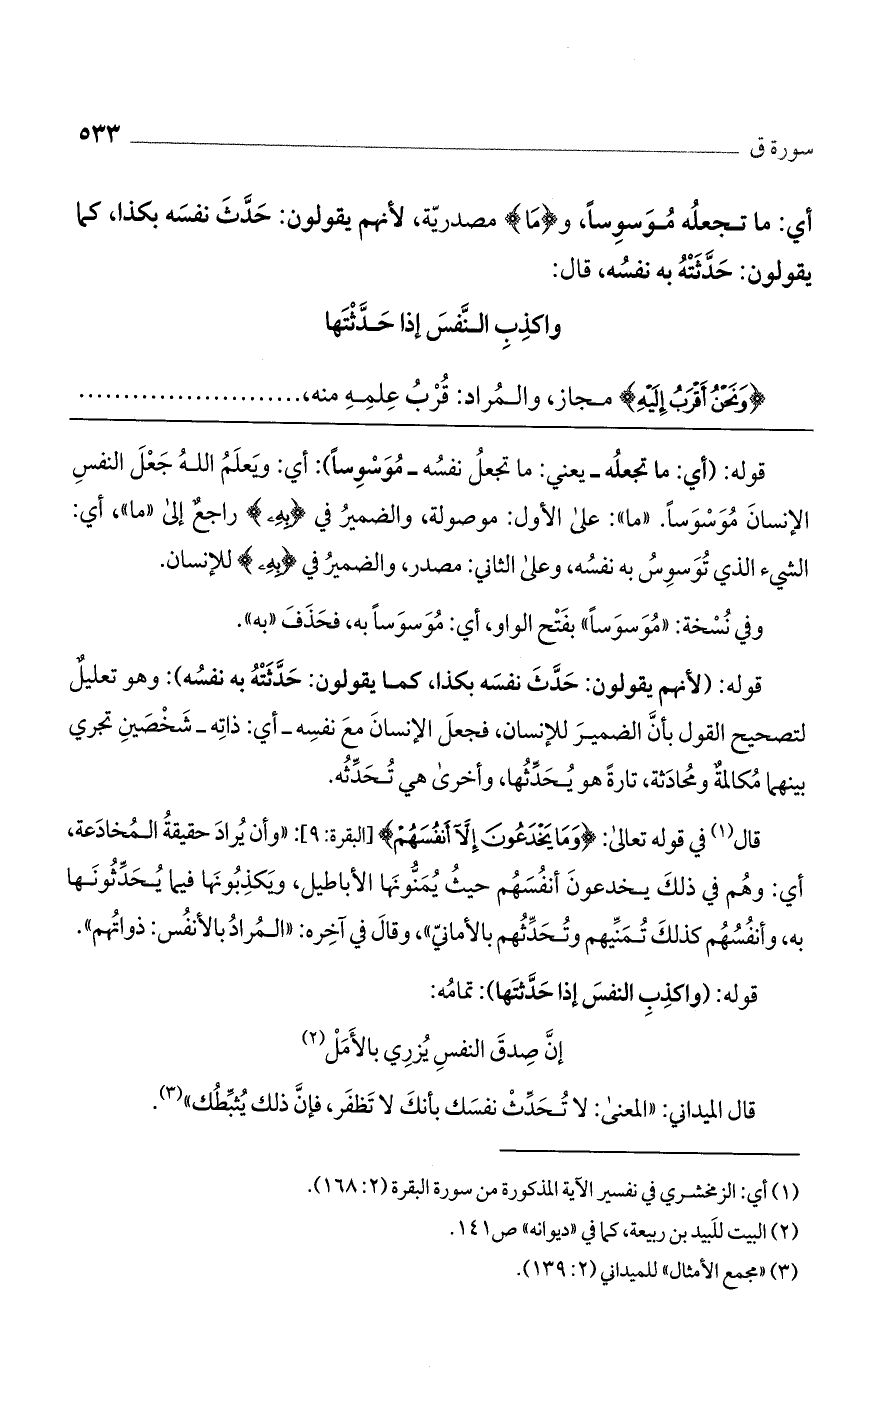 سورة ق ٥٣٣
أي: ما تـجعلُه مُـوَسوِساً، و﴿مَا﴾ مصدريّة، لأنهم يقولون: حَدَّثَ نفسَه بكذا، كما
يقولون: حَدَّثَتْهُ به نفسُه، قال:
واكذِبِ الـنَّفسَ إذا حَـدَّثْتَها
﴿وَنَحْنُ أَقْرَبُ إِلَيْهِ﴾ مـجاز، والـمُراد: قُرْبُ عِلمِـهِ منه،.........................
قوله: (أي: ما تجعلُه ـ يعني: ما تجعلُ نفسُه ـ مُوَسْوِساً): أي: ويَعلَمُ اللهُ جَعْلَ النفسِ
الإنسانَ مُوَسْوَساً. «ما»: علىٰ الأول: موصولة، والضميرُ في ﴿بِهِۦ﴾ راجعٌ إلىٰ «ما»، أي:
الشيء الذي تُوَسوِسُ به نفسُه، وعلىٰ الثاني: مصدر، والضميرُ في ﴿بِهِۦ﴾ للإنسان.
وفي نُسْخة: «مُوَسوَساً» بفَتْح الواو، أي: مُوَسوَساً به، فحَذَفَ «به».
قوله: (لأنهم يقولون: حَدَّثَ نفسَه بكذا، كمـا يقولون: حَدَّثَتْهُ به نفسُه): وهو تعليلٌ
لتصحيح القول بأنَّ الضميـرَ للإنسان، فجعلَ الإنسانَ معَ نفسِه ـ أي: ذاتِه ـ شَخْصَينِ تجري
بينهما مُكالمةٌ ومُحادَثة، تارةً هو يُـحَدِّثُها، وأخرىٰ هي تُـحَدِّثُه.
قال(١) في قوله تعالىٰ: ﴿وَمَا يَخْدَعُونَ إِلَّآ أَنفُسَهُمْ﴾ [البقرة: ٩]: «وأن يُرادَ حقيقةُ الـمُخادَعة،
أي: وهُم في ذلكَ يـخدعونَ أنفُسَهُم حيثُ يُمَنُّونَها الأباطيل، ويَكذِبُونَها فيما يُـحَدِّثُونَـها
به، وأنفُسُهُم كذلكَ تُـمَنِّيهم وتُـحَدِّثُهم بالأمانيّ»، وقالَ في آخِره: «الـمُرادُ بالأنفُس: ذواتُهم».
قوله: (واكذِبِ النفسَ إذا حَدَّثتَها): تمامُه:
إنَّ صِدقَ النفسِ يُزرِي بالأَمَلْ(٢)
قال الميداني: «المعنىٰ: لا تُـحَدِّثْ نفسَك بأنكَ لا تَظفَر، فإنَّ ذلك يُثَبِّطُك»(٣).
(١) أي: الزمخشـري في تفسير الآية المذكورة من سورة البقرة (٢: ١٦٨).
(٢) البيت للَبيد بن ربيعة، كما في «ديوانه» ص١٤١.
(٣) «مجمع الأمثال» للميداني (٢: ١٣٩).